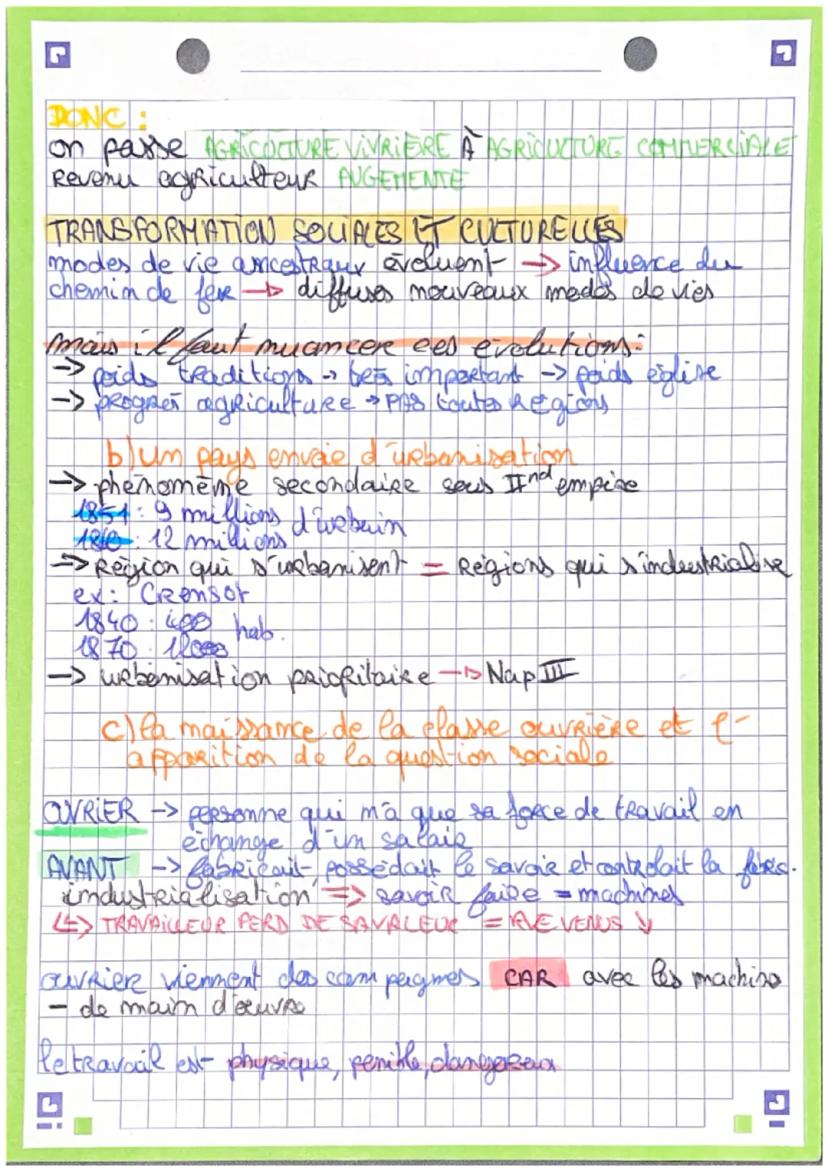 DONC :
on passe AGRICULTURE VIVRIÈRE À AGRICULTURE COMMERCIALE
Revenu agriculteur AUGEMENTE
TRANSFORMATION SOCIALES ET CULTURELLES
modes de vie ancestraux évoluent → influence du
chemin de fer → diffuses nouveaux modes de vies
mais il faut nuancer ces évolutions:
→ poids traditions → très important → poids église
→ progrès agriculture → PAS toutes régions
b) un pays envoie d'urbanisation
→ phénomème secondaire sous IInd empire
1851 : 9 millions d'urbain
: 12 millions
→ Région qui s'urbanisent = Régions qui s'industrialise
ex: Creusot
1840 : 400 hab.
1870 : 11000
→ urbanisation prioritaire → Nap III
c) la naissance de la classe ouvrière et l'-
apparition de la question sociale
OUVRIER → personne qui n'a que sa force de travail en
échange d'un salaire
AVANT → fabriquait, possédait le savoir et controlait la fabric.
industrialisation => savoir faire = machines
↳> TRAVAILLEUR PERD DE SA VALEUR = REVENUS ↘
ouvrier viennent des campagnes CAR avec les machins
- de main d'œuvre
le travail est physique, penible, dangereux